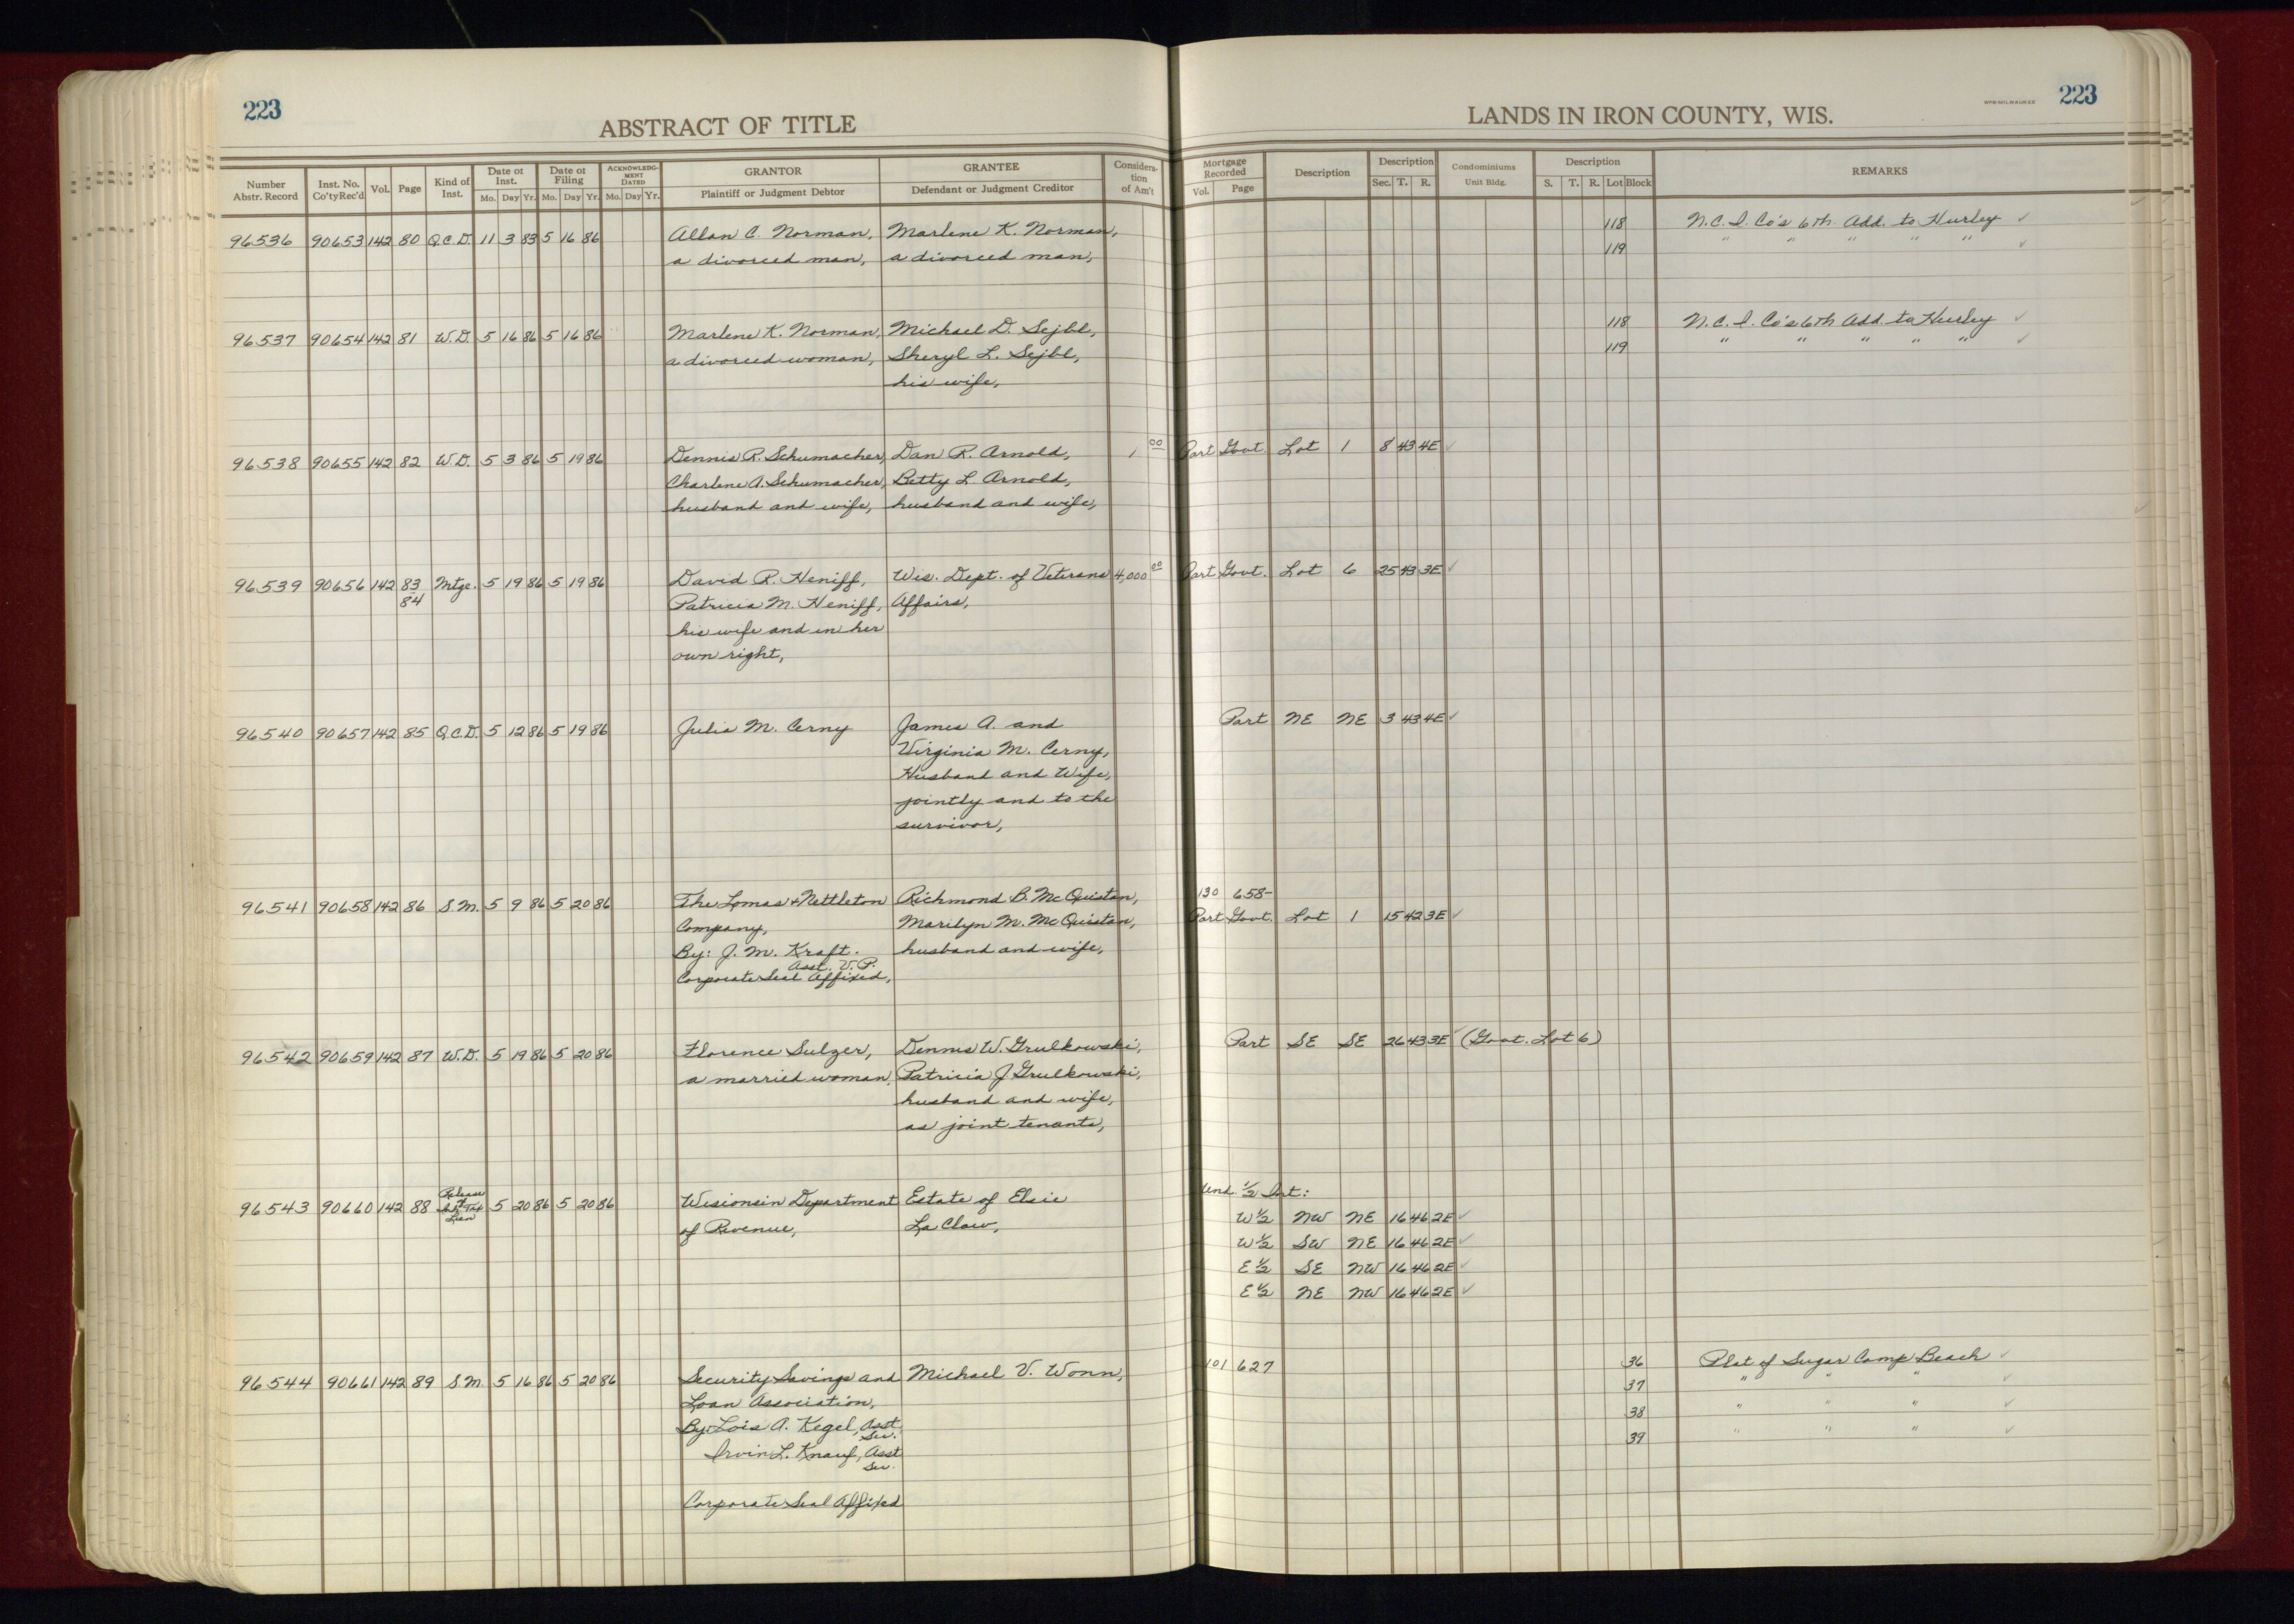 223
ABSTRACT OF TITLE
LANDS IN IRON COUNTY, WIS.
WPB-MILWAUKEE
223
Number Abstr. Record | Inst. No. Co'ty Rec'd | Vol. | Page | Kind of Inst. | Date of Inst. Mo. Day Yr. | Date of Filing Mo. Day Yr. | ACKNOWLEDGMENT DATED Mo. Day Yr. | GRANTOR Plaintiff or Judgment Debtor | GRANTEE Defendant or Judgment Creditor | Considera-tion of Am't | Mortgage Recorded Vol. Page | Description | Description Sec. T. R. | Condominiums Unit Bldg. | Description S. T. R. Lot Block | REMARKS
96536 90653 142 80 Q.C.D. 11 3 83 5 16 86 Allan C. Norman, Marlene K. Norman, 118 N.C.I. Co's 6th Add. to Hurley ✓
a divorced man, a divorced man, 119 " " " " " ✓
96537 90654 142 81 W.D. 5 16 86 5 16 86 Marlene K. Norman, Michael D. Sejbl, 118 N.C.I. Co's 6th Add. to Hurley ✓
a divorced woman, Sheryl L. Sejbl, 119 " " " " " ✓
his wife,
96538 90655 142 82 W.D. 5 3 86 5 19 86 Dennis R. Schumacher, Dan R. Arnold, 1 00 Part Govt. Lot 1 8 43 4E ✓
Charlene A. Schumacher, Betty L. Arnold,
husband and wife, husband and wife,
96539 90656 142 83 Mtge. 5 19 86 5 19 86 David R. Heniff, Wis. Dept. of Veterans 4,000 00 Part Govt. Lot 6 25 43 3E ✓
84 Patricia M. Heniff, Affairs,
his wife and in her
own right,
96540 90657 142 85 Q.C.D. 5 12 86 5 19 86 Julia M. Cerny James A. and Part NE NE 3 43 4E ✓
Virginia M. Cerny,
Husband and Wife,
jointly and to the
survivor,
96541 90658 142 86 S.M. 5 9 86 5 20 86 The Lomas & Nettleton Richmond B. McQuistan, 130 658-
Company, Marilyn M. McQuistan, Part Govt. Lot 1 15 42 3E ✓
By: J. M. Kraft. husband and wife,
Asst. V.P.
Corporate Seal Affixed,
96542 90659 142 87 W.D. 5 19 86 5 20 86 Florence Sulzer, Dennis W. Grulkowski, Part SE SE 26 43 3E ✓ (Govt. Lot 6)
a married woman, Patricia J. Grulkowski,
husband and wife,
as joint tenants,
96543 90660 142 88 Release of Tax Lien 5 20 86 5 20 86 Wisionsin Department Estate of Elsie Und. ½ Int:
of Revenue, La Claw, W½ NW NE 16 46 2E ✓
W½ SW NE 16 46 2E ✓
E½ SE NW 16 46 2E ✓
E½ NE NW 16 46 2E ✓
96544 90661 142 89 S.M. 5 16 86 5 20 86 Security Savings and Michael V. Wonn, 101 627 36 Plat of Sugar Camp Beach ✓
Loan Association, 37 " " " ✓
By: Lois A. Kegel, Asst. Sec. 38 " " " ✓
Irvin L. Knauf, Asst Sec. 39 " " " ✓
Corporate Seal Affixed